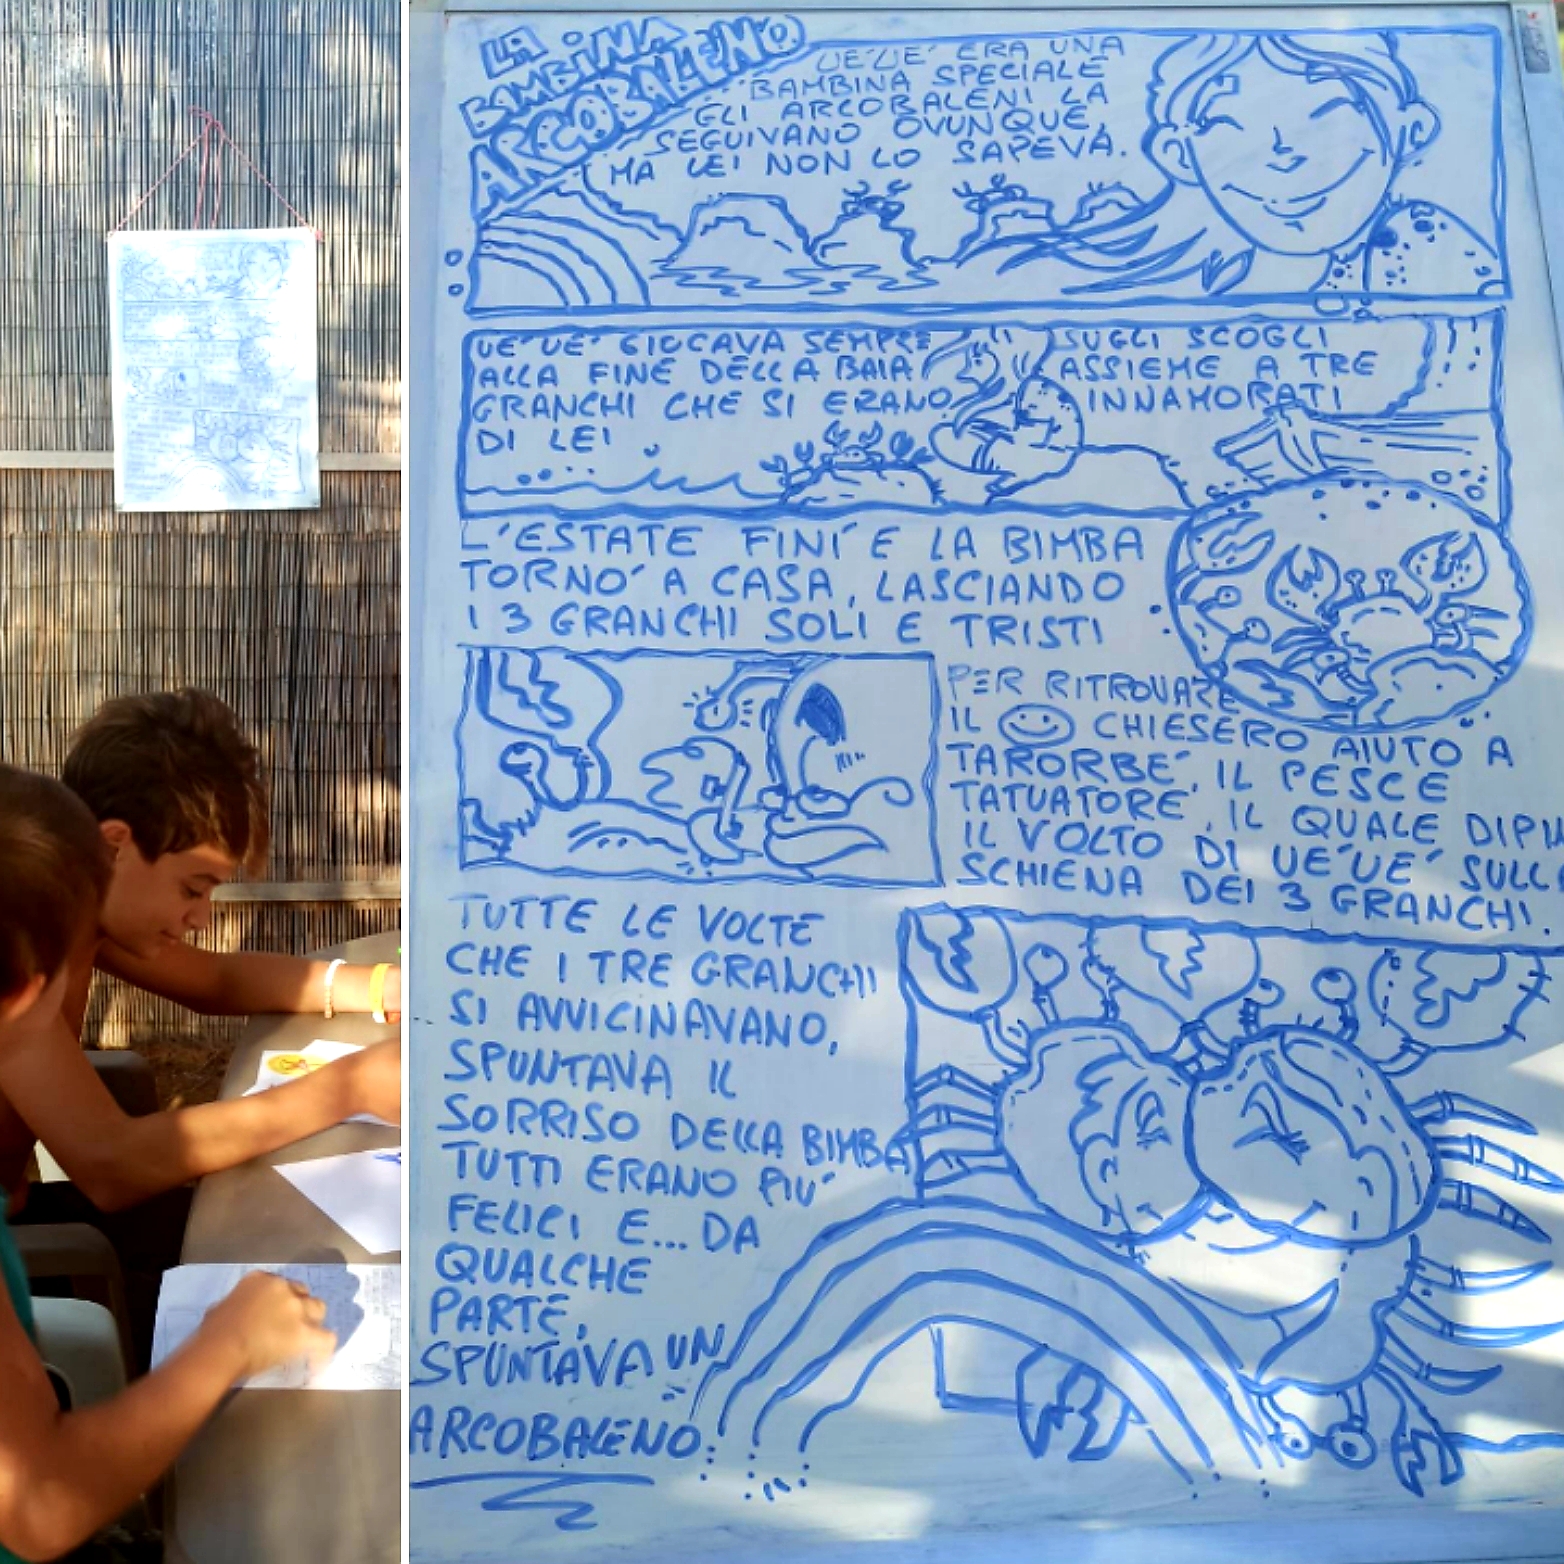 LA
BAMBINA
ARCOBALENO
UE'UE' ERA UNA
BAMBINA SPECIALE
GLI ARCOBALENI LA
SEGUIVANO OVUNQUE,
MA LEI NON LO SAPEVA.
UE'UE' GIOCAVA SEMPRE SUGLI SCOGLI
ALLA FINE DELLA BAIA ASSIEME A TRE
GRANCHI CHE SI ERANO INNAMORATI
DI LEI
L'ESTATE FINI' E LA BIMBA
TORNO' A CASA, LASCIANDO
I 3 GRANCHI SOLI E TRISTI
PER RITROVARE
IL ☺ CHIESERO AIUTO A
TARORBE', IL PESCE
TATUATORE, IL QUALE DIPIN
IL VOLTO DI UE'UE' SULLA
SCHIENA DEI 3 GRANCHI.
TUTTE LE VOLTE
CHE I TRE GRANCHI
SI AVVICINAVANO,
SPUNTAVA IL
SORRISO DELLA BIMBA
TUTTI ERANO PIU'
FELICI E... DA
QUALCHE
PARTE,
SPUNTAVA UN
ARCOBALENO.